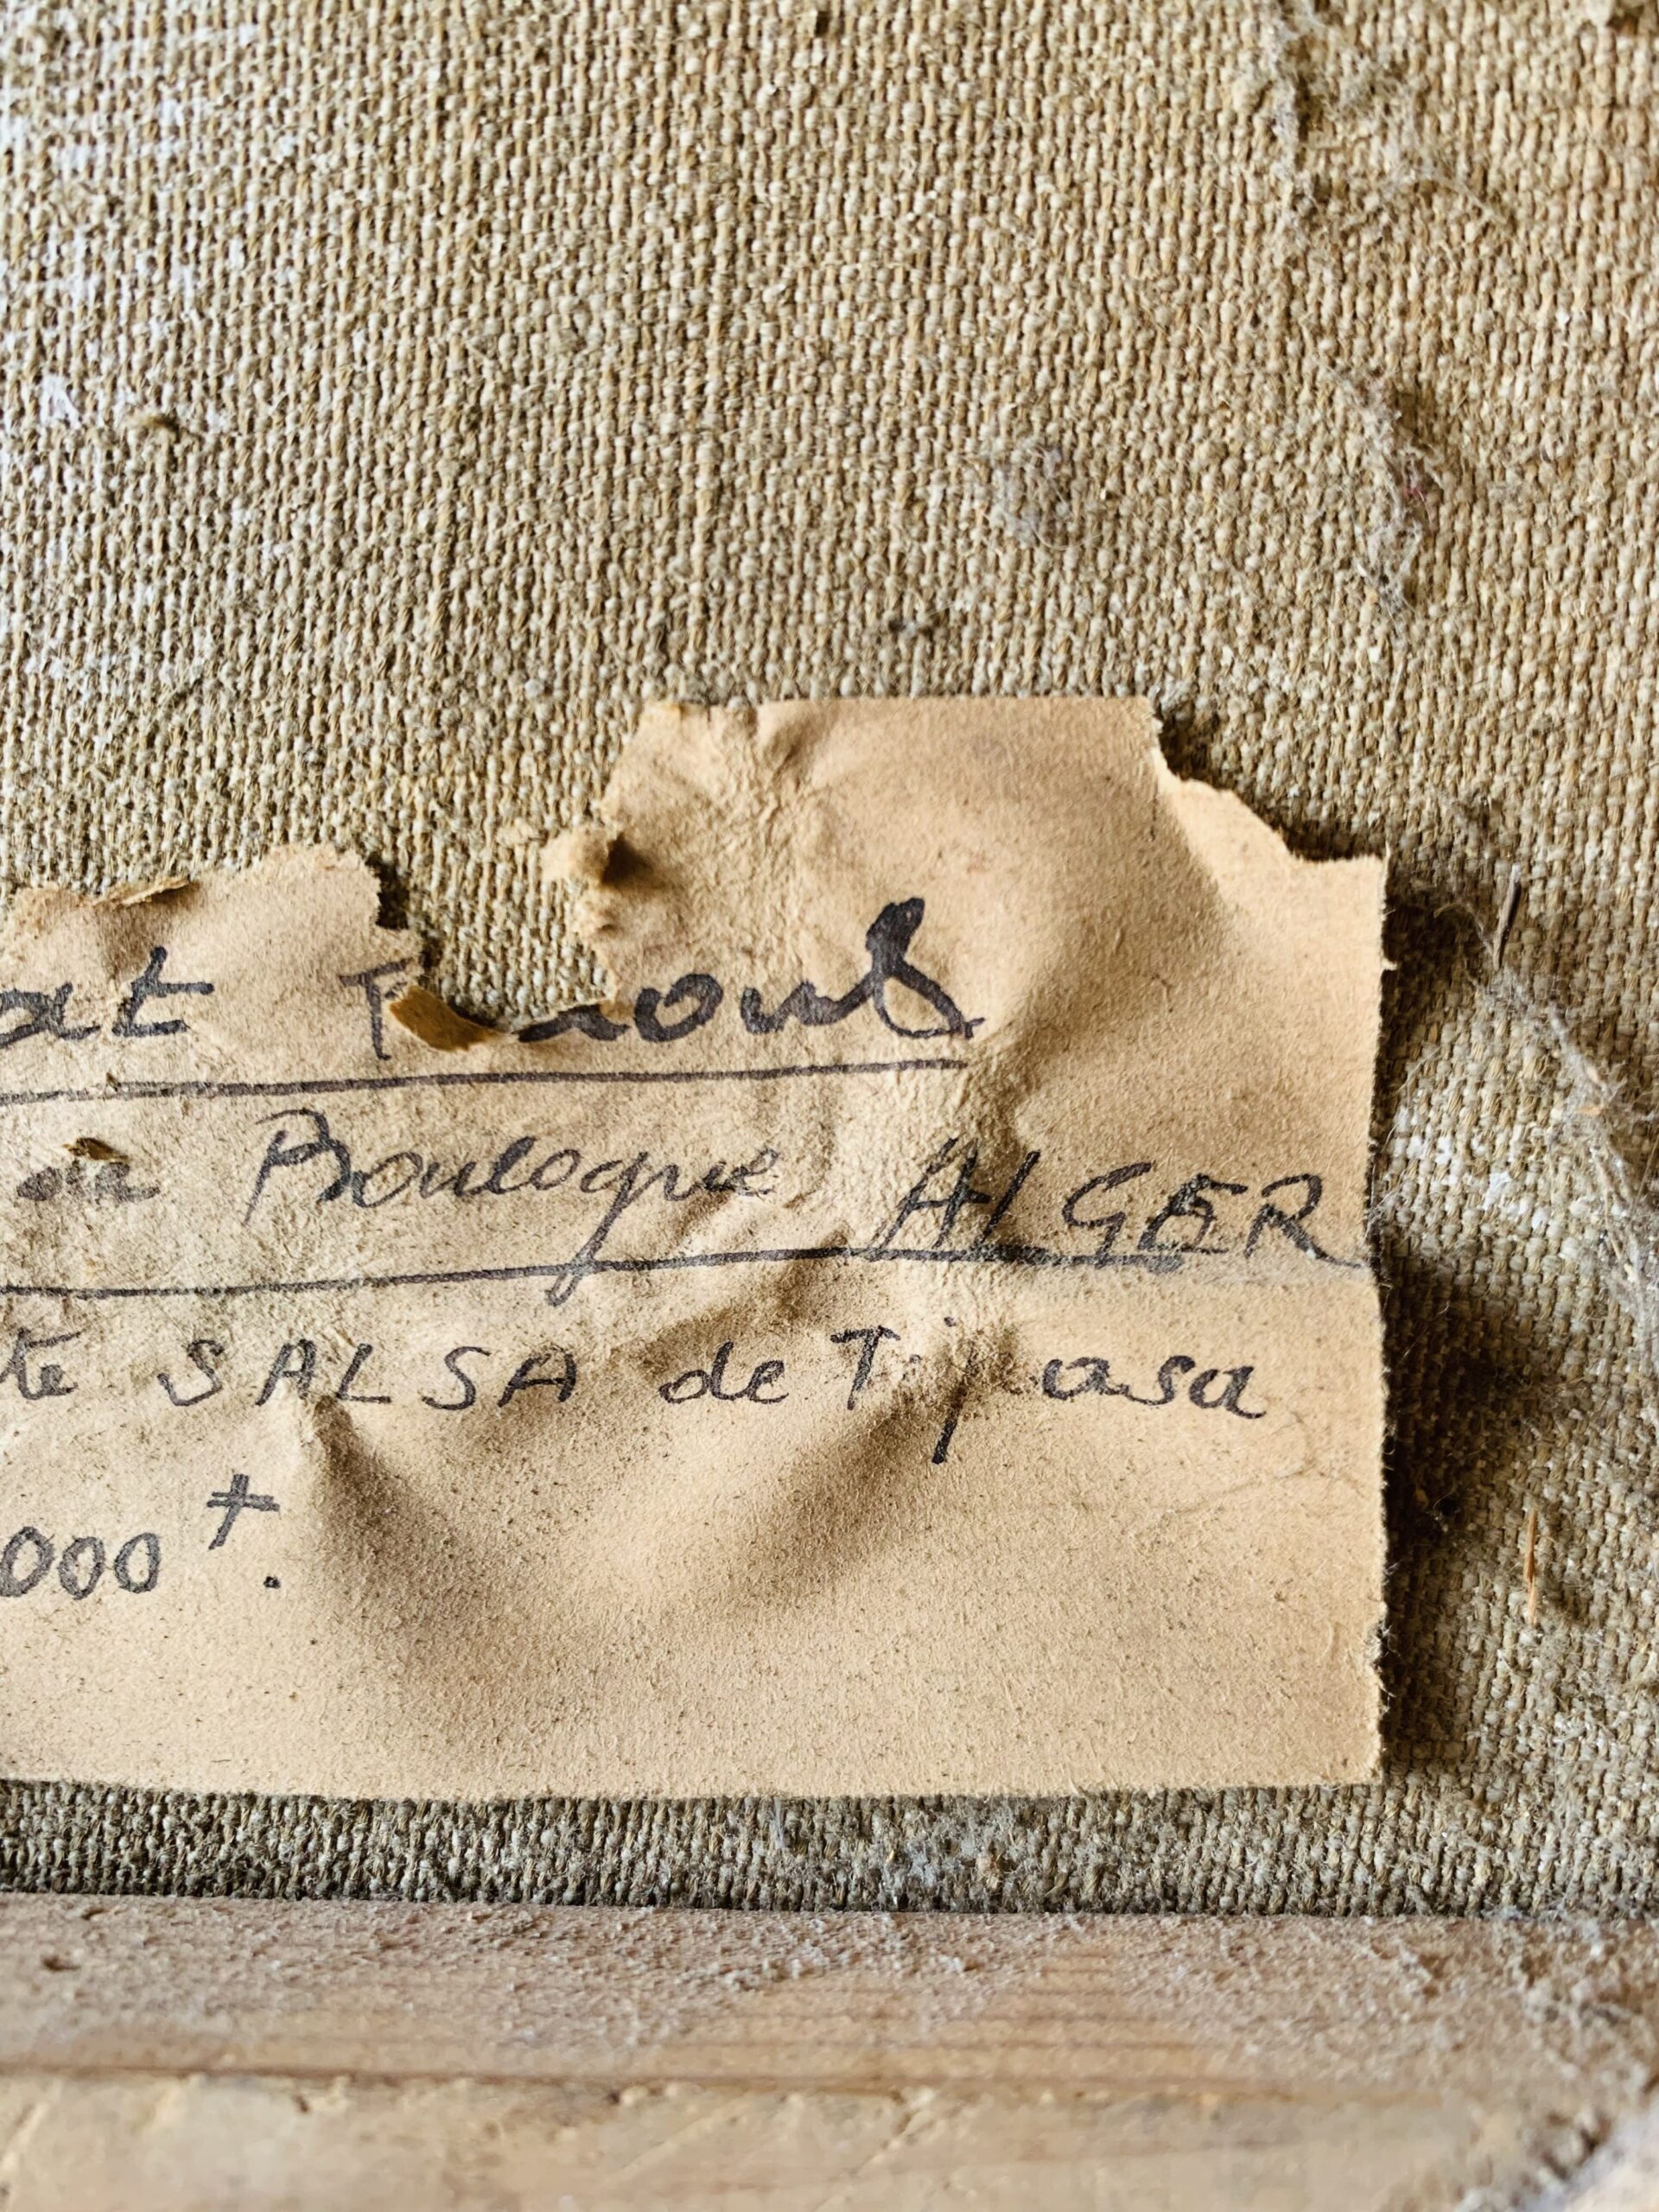 at Raoul
de Boulogne ALGER
te SALSA de Tipasa
000 F.